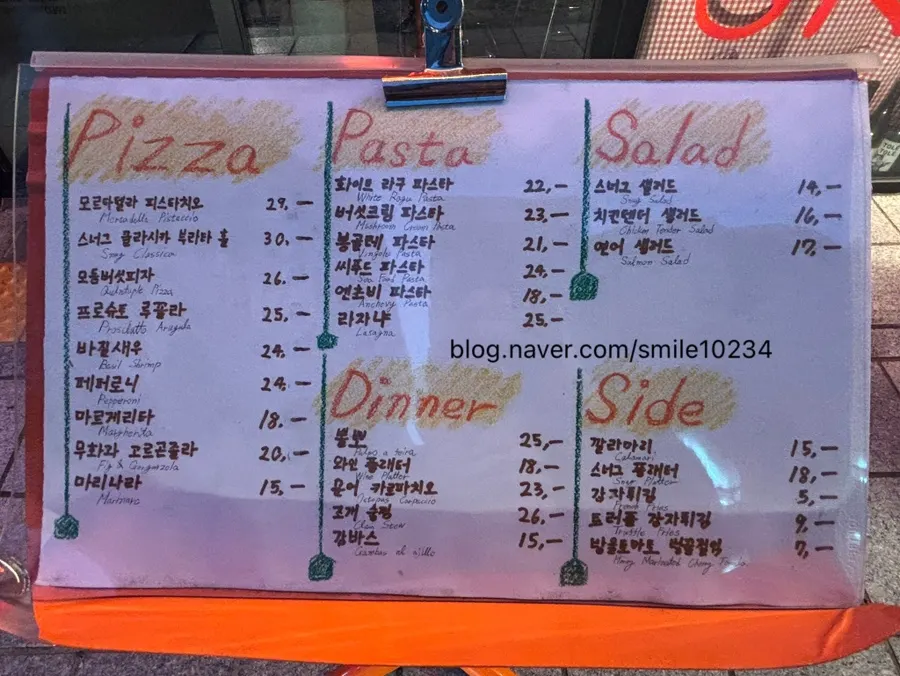 Pizza
모르타델라 피스타치오 29.-
Mortadella Pistaccio
스너그 클라시카 부라타 홀 30.-
Snug Classica
모둠버섯피자 26.-
Pizza
프로슈토 루꼴라 25.-
Prosciutto Arugula
바질새우 24.-
Basil Shrimp
페퍼로니 24.-
Pepperoni
마르게리타 18.-
Margherita
무화과 고르곤졸라 20.-
Fig & Gorgonzola
마리나라 15.-
Marinara
Pasta
화이트 라구 파스타 22.-
White Ragu Pasta
버섯크림 파스타 23.-
Mushroom Cream Pasta
봉골레 파스타 21.-
Vongole Pasta
씨푸드 파스타 24.-
Sea Food Pasta
엔초비 파스타 18.-
Anchovy Pasta
라자냐 25.-
Lasagna
Salad
스너그 샐러드 14.-
Snug Salad
치킨텐더 샐러드 16.-
Chicken Tender Salad
연어 샐러드 17.-
Salmon Salad
blog.naver.com/smile10234
Dinner
뽈뽀 25.-
와인 플래터 18.-
Wine Platter
문어 카르파치오 23.-
Octopus Carpaccio
조개 술찜 26.-
Clam Stew
감바스 15.-
Gambas al ajillo
Side
깔라마리 15.-
Calamari
스너그 플래터 18.-
Snug Platter
감자튀김 5.-
Fries
트러플 감자튀김 9.-
Truffle Fries
방울토마토 벌꿀절임 7.-
Honey Marinated Cherry